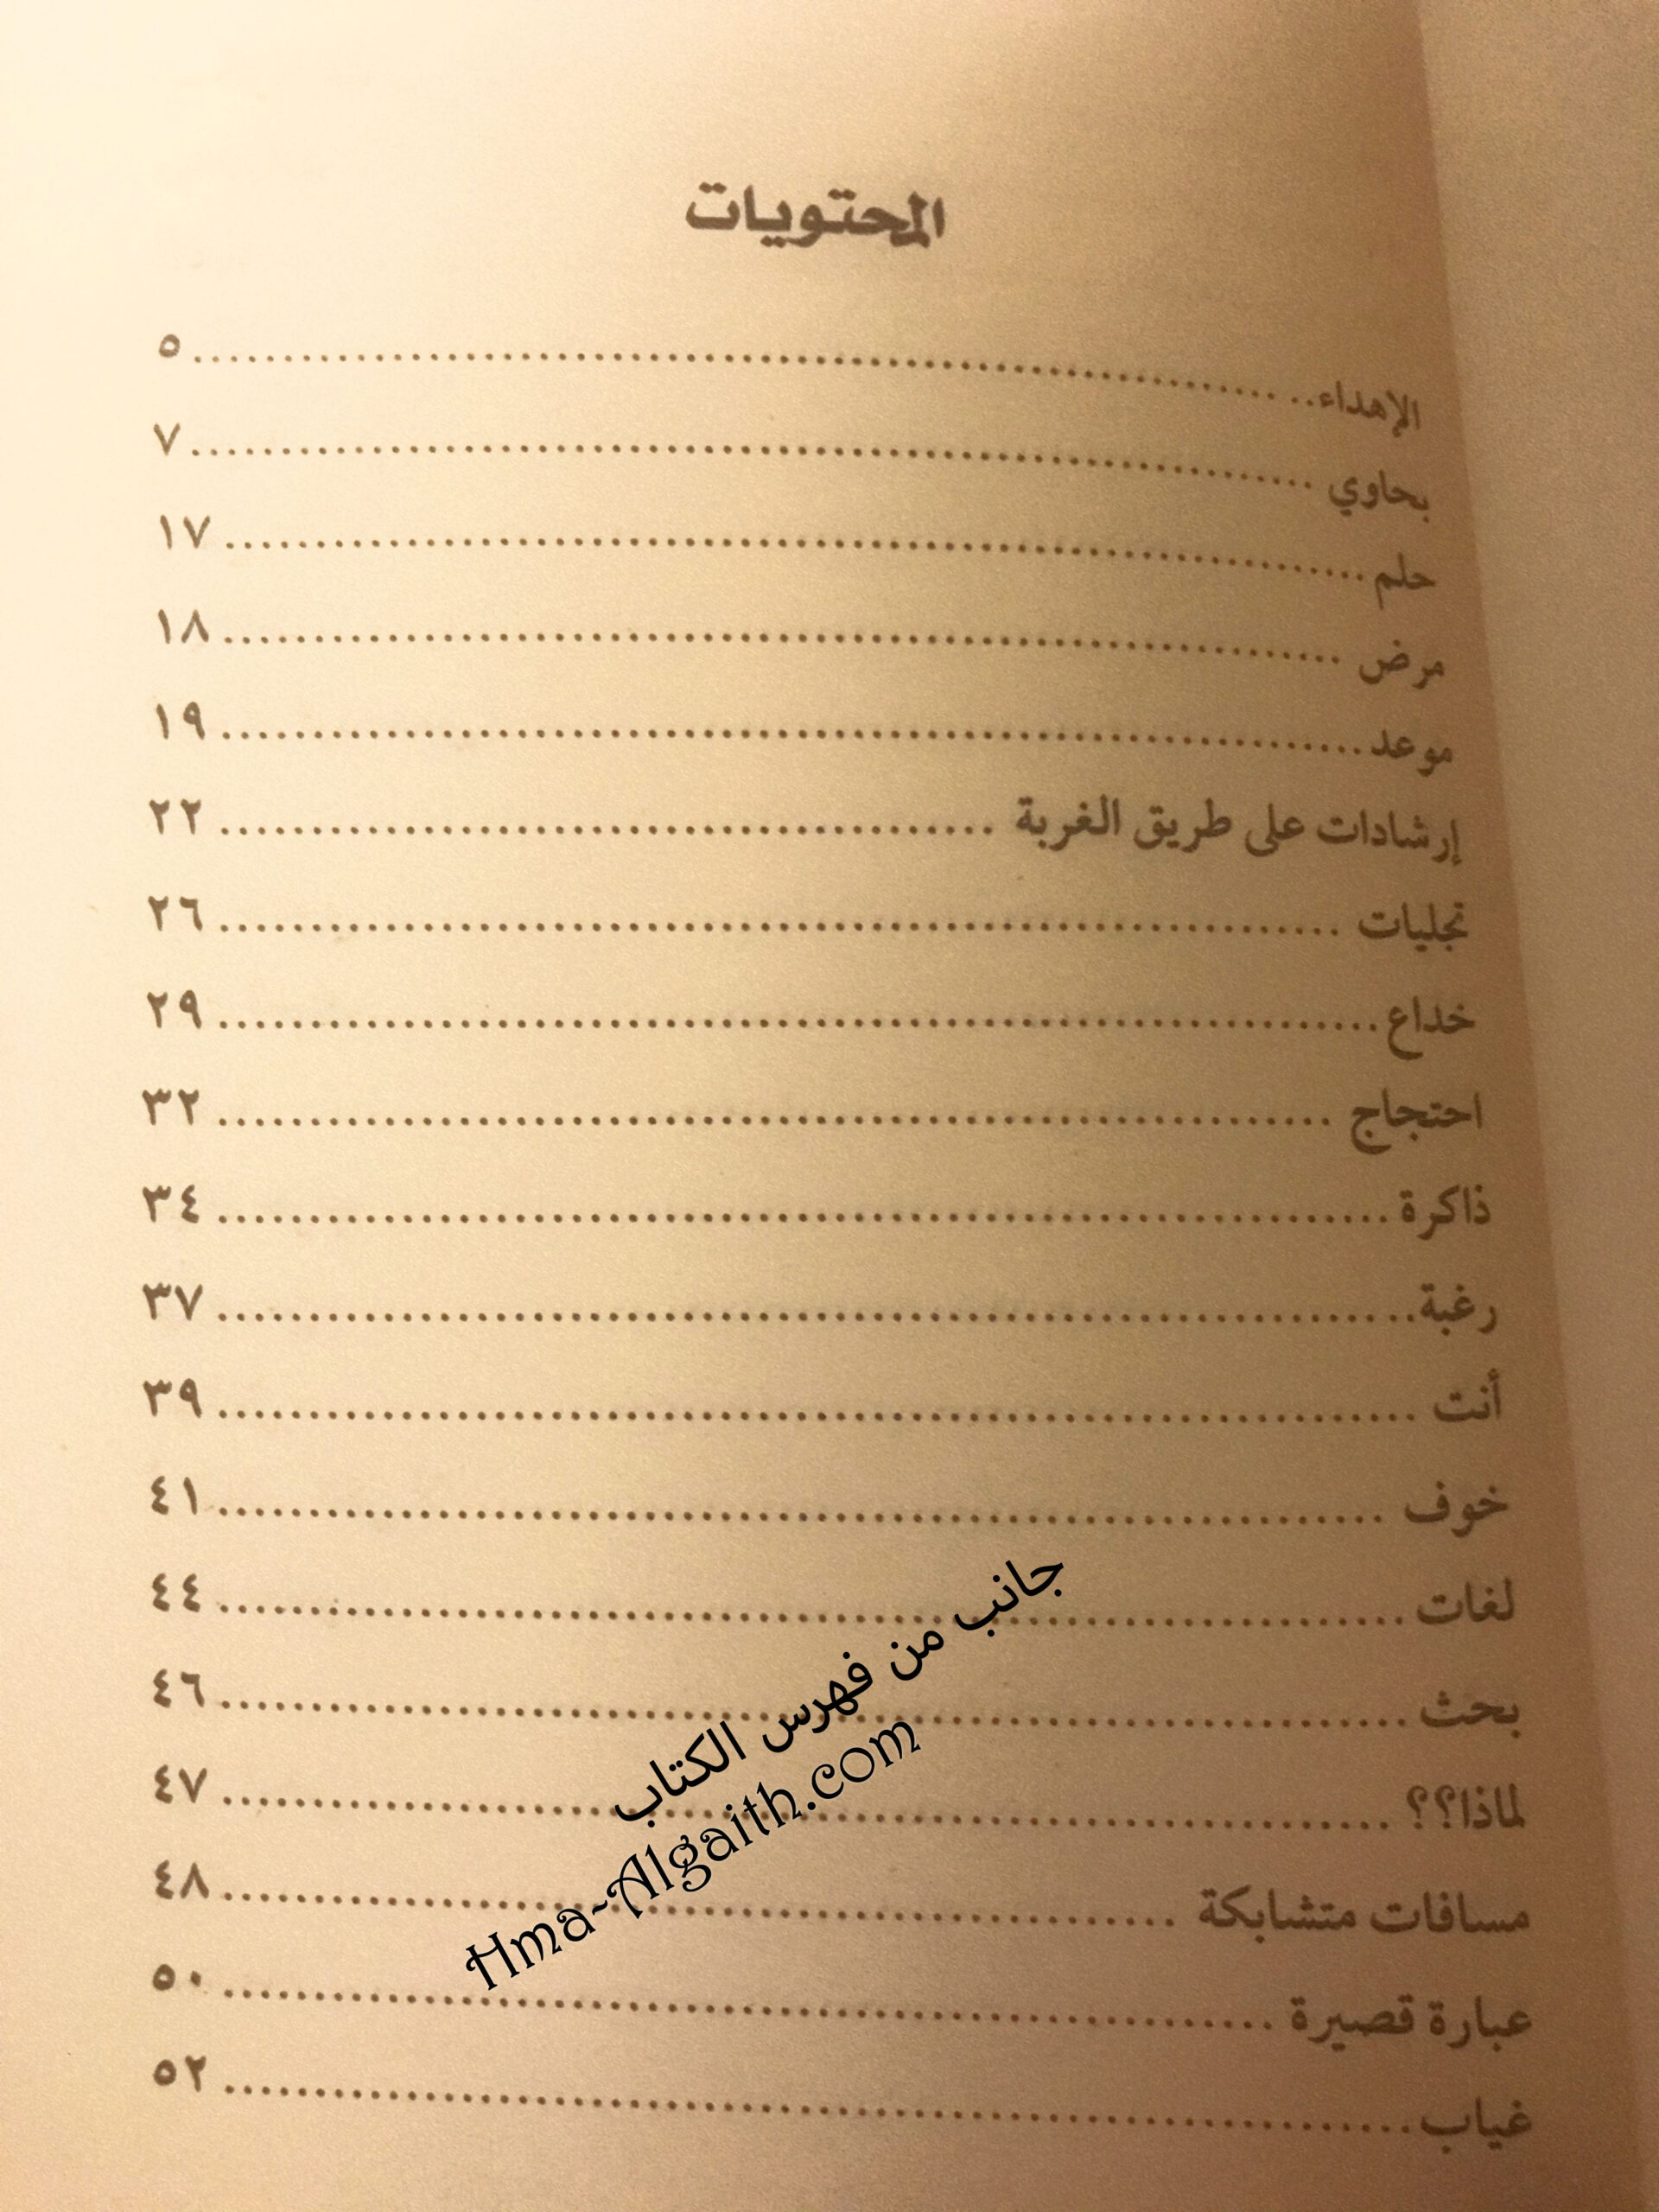 المحتويات
الإهداء.......................................................................٥
بحاوي.......................................................................٧
حلم.......................................................................١٧
مرض.......................................................................١٨
موعد.......................................................................١٩
إرشادات على طريق الغربة.............................................٢٢
تجليات.......................................................................٢٦
خداع.......................................................................٢٩
احتجاج.......................................................................٣٢
ذاكرة.......................................................................٣٤
رغبة.......................................................................٣٧
أنت.......................................................................٣٩
خوف.......................................................................٤١
لغات.......................................................................٤٤
بحث.......................................................................٤٦
لماذا؟؟.......................................................................٤٧
مسافات متشابكة.......................................................٤٨
عبارة قصيرة.............................................................٥٠
غياب.......................................................................٥٢
جانب من فهرس الكتاب
Hma-Algaith.com